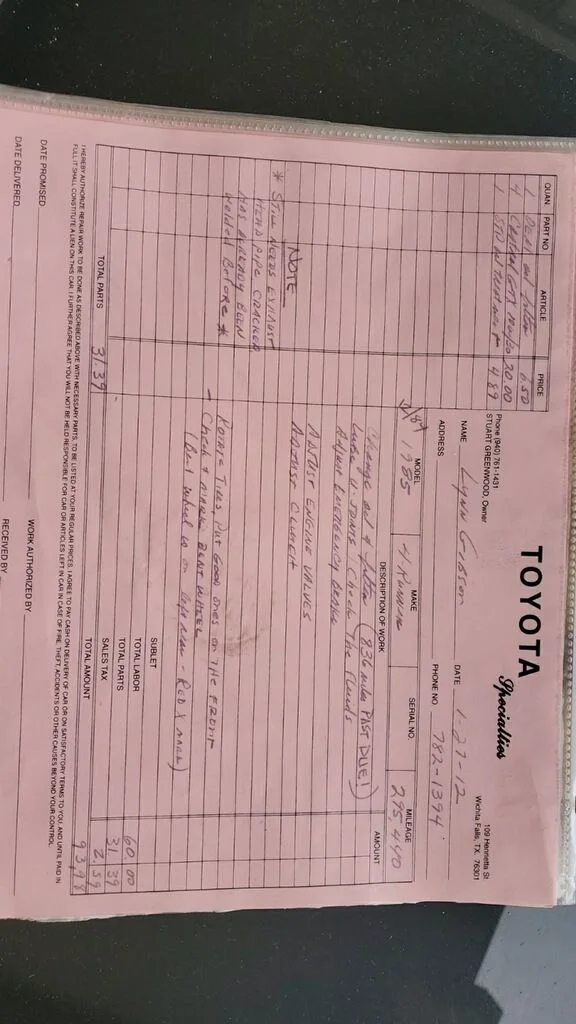 TOYOTA
Specialties
109 Henrietta St
Wichita Falls, TX 76301
Phone (940) 761-1431
STUART GREENWOOD, Owner
NAME Lynn Gibson DATE 1-27-12
ADDRESS PHONE NO. 782-1394
QUAN. PART NO. ARTICLE PRICE
1 oil filter 6.50
4 20.00
1 STP oil treatment 4.89
MODEL MAKE SERIAL NO. MILEAGE
1985 4 Runner 295,440
DESCRIPTION OF WORK AMOUNT
Change oil & filter (836 miles PAST DUE!)
Lube U-Joints, Check The fluids
Adjust EMERGENCY Brake
ADJUST ENGINE VALVES
ADJUST CLUTCH
NOTE
* STILL NEEDS EXHAUST
HEAD PIPE CRACKED
HAS ALREADY BEEN
Welded Before *
Rotate Tires, Put Good ones on THE FRONT
- Check & MARK BENT WHEEL
(Bent wheel is on left rear - RED X MARK)
SUBLET
TOTAL LABOR 60.00
TOTAL PARTS 31.39
SALES TAX 2.59
TOTAL AMOUNT 93.98
TOTAL PARTS 31.39
I HEREBY AUTHORIZE REPAIR WORK TO BE DONE AS DESCRIBED ABOVE WITH NECESSARY PARTS, TO BE LISTED AT YOUR REGULAR PRICES. I AGREE TO PAY CASH ON DELIVERY OF CAR OR ON SATISFACTORY TERMS TO YOU, AND UNTIL PAID IN
FULL IT SHALL CONSTITUTE A LIEN ON THIS CAR. I FURTHER AGREE THAT YOU WILL NOT BE HELD RESPONSIBLE FOR CAR OR ARTICLES LEFT IN CAR IN CASE OF FIRE, THEFT, ACCIDENTS OR OTHER CAUSES BEYOND YOUR CONTROL.
DATE PROMISED WORK AUTHORIZED BY
DATE DELIVERED RECEIVED BY